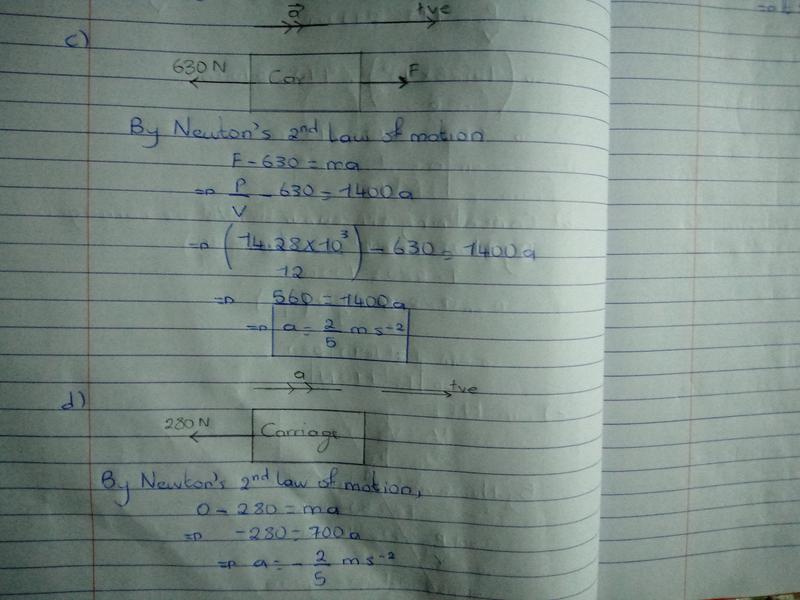 a⃗ +ve
c)
630 N Car F
By Newton's 2nd Law of motion
F - 630 = ma
⇒ P/V - 630 = 1400a
⇒ (14.28×10³/12) - 630 = 1400a
⇒ 560 = 1400a
⇒ a = 2/5 ms⁻²
a +ve
d)
280 N Carriage
By Newton's 2nd Law of motion,
0 - 280 = ma
⇒ -280 = 700a
⇒ a = -2/5 ms⁻²